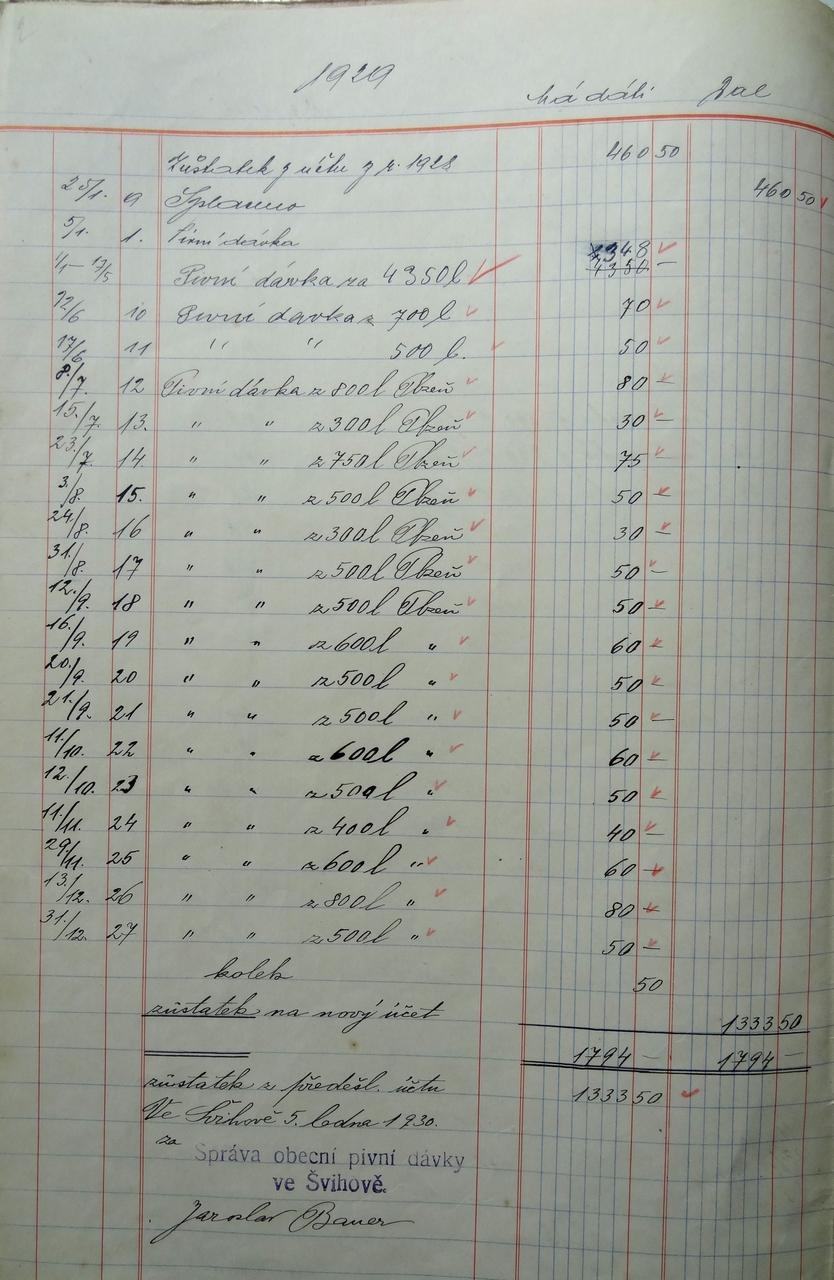 1929
má dáti Dal
Zůstatek z účtu z r. 1928 460 50
25/1. 9 Splaceno 460 50
5/1. 1. Pivní dávka
1/1 – 17/5 Pivní dávka za 4350 l 4350 —
12/6 10 Pivní dávka z 700 l 70 —
17/6 11 " " 500 l. 50 —
8./7. 12 Pivní dávka z 800 l Plzeň 80 —
15./7 13. " " z 300 l Plzeň 30 —
23./7. 14. " " z 750 l Plzeň 75 —
3./8. 15. " " z 500 l Plzeň 50 —
24./8. 16 " " z 300 l Plzeň 30 —
31./8. 17 " " z 500 l Plzeň 50 —
12./9. 18 " " z 500 l Plzeň 50 —
16./9. 19 " " z 600 l " 60 —
20./9. 20 " " z 500 l " 50 —
21./9. 21 " " z 500 l " 50 —
11./10. 22 " " z 600 l " 60 —
12./10. 23 " " z 500 l " 50 —
11./11. 24 " " z 400 l " 40 —
29./11. 25 " " z 600 l " 60 —
13./12. 26 " " z 800 l " 80 —
31./12. 27 " " z 500 l " 50 —
kolek 50
zůstatek na nový účet 1333 50
1794 — 1794 —
zůstatek z předešl. účtu 1333 50
Ve Švihově 5. ledna 1930.
za
Správa obecní pivní dávky
ve Švihově.
Jaroslav Bauer